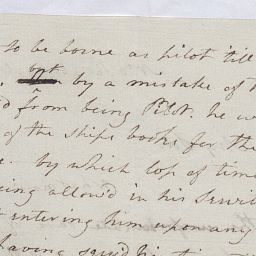 to be borne as pilot till
but
by a mistake of
from being Pilot. he w
of the ships books for the
by which loss of time
being allow'd in his Servi
entering him upon any
having